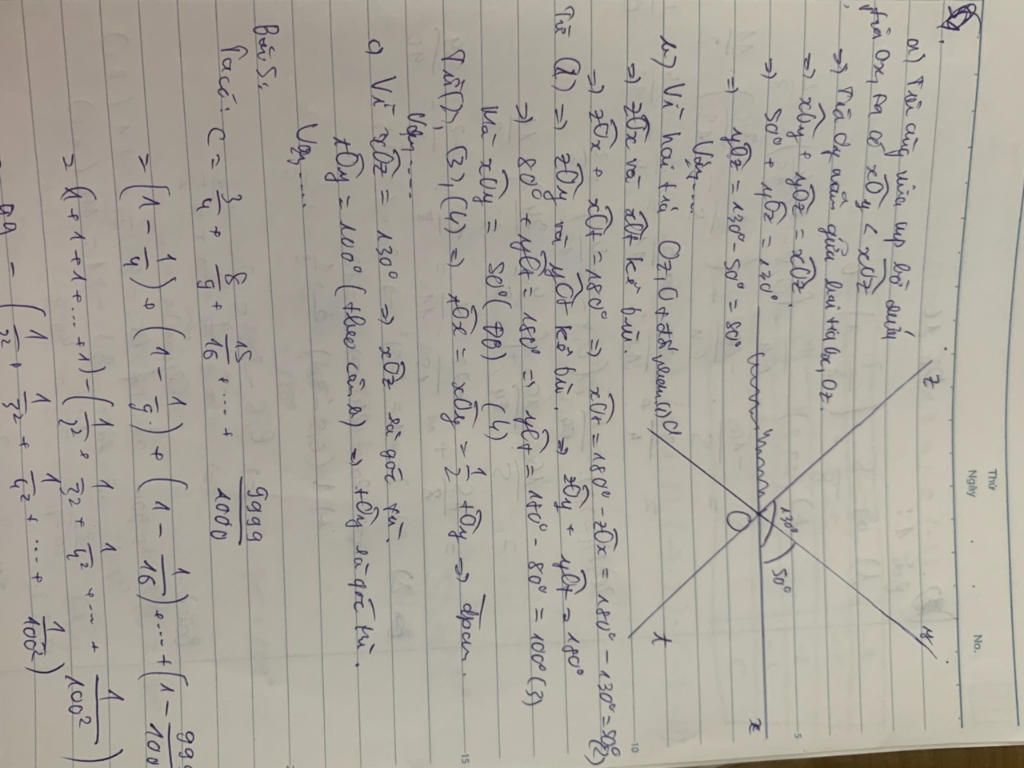 Thứ
Ngày No.
a) Trên cùng nửa mp bờ chứa
tia Ox, ta có xOy < xOz
=> Tia Oy nằm giữa hai tia Ox, Oz.
=> xOy + yOz = xOz.
=> 50° + yOz = 130°
=> yOz = 130° - 50° = 80°
Vậy....
z
y
130°
50°
x
O
t
b) Vì hai tia Oz, Ot
=> zOx và xOt kề bù.
=> zOx + xOt = 180° => xOt = 180° - zOx = 180° - 130° = 50° (2)
Từ (1) => zOy và yOt kề bù. => zOy + yOt = 180°
=> 80° + yOt = 180° => yOt = 180° - 80° = 100° (3)
Mà xOy = 50° (4)
Từ (2), (3), (4) => tOx = xOy = 1/2 tOy => đpcm.
Vậy.....
c) Vì xOz = 130° => xOz là góc tù.
tOy = 100° (theo câu a) => tOy là góc tù.
Vậy....
Bài 5:
Ta có: C = 3/4 + 8/9 + 15/16 + ... + 9999/1000
= (1 - 1/4) + (1 - 1/9) + (1 - 1/16) + ... + (1 -
= (1 + 1 + 1 + ... + 1) - (1/2² + 1/3² + 1/4² + ... + 1/100²)
99 - (1/2² + 1/3² + 1/4² + ... + 1/100²)